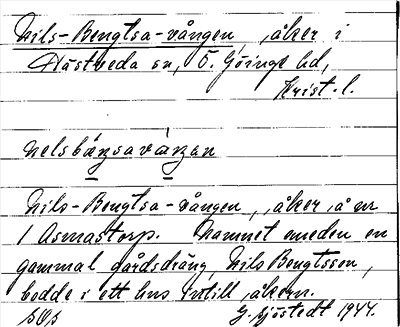 Nils-Bengtsa-vången, åker i
Hästveda sn, Ö. Göinge hd,
Krist. l.
nelsbæŋsavåŋan
Nils-Bengtsa-vången, åker å nr
1 Asmastorp. Namnet emedan en
gammal gårdsdräng, Nils Bengtsson,
bodde i ett hus intill åkern.
G. Sjöstedt 1944.